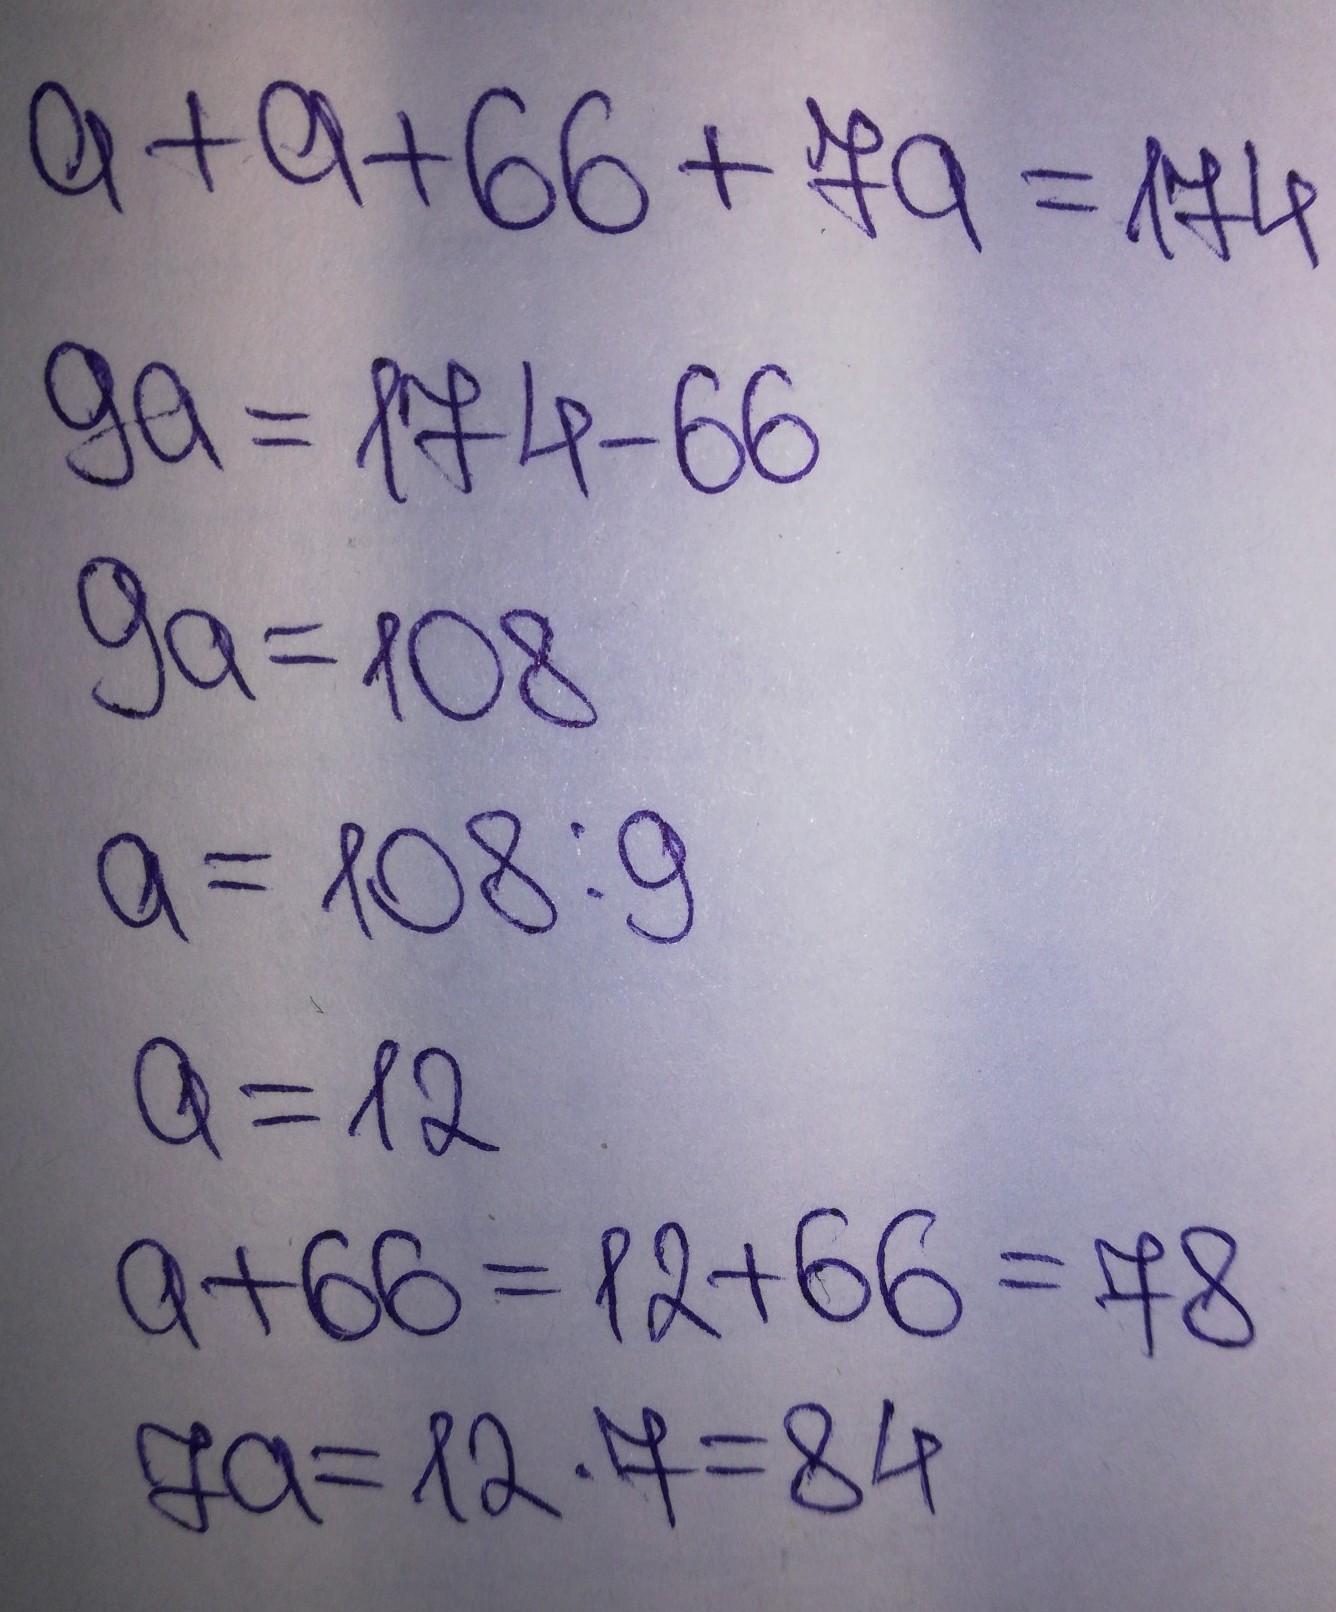 a+a+66+7a=174
9a=174-66
9a=108
a=108:9
a=12
a+66=12+66=78
7a=12·7=84